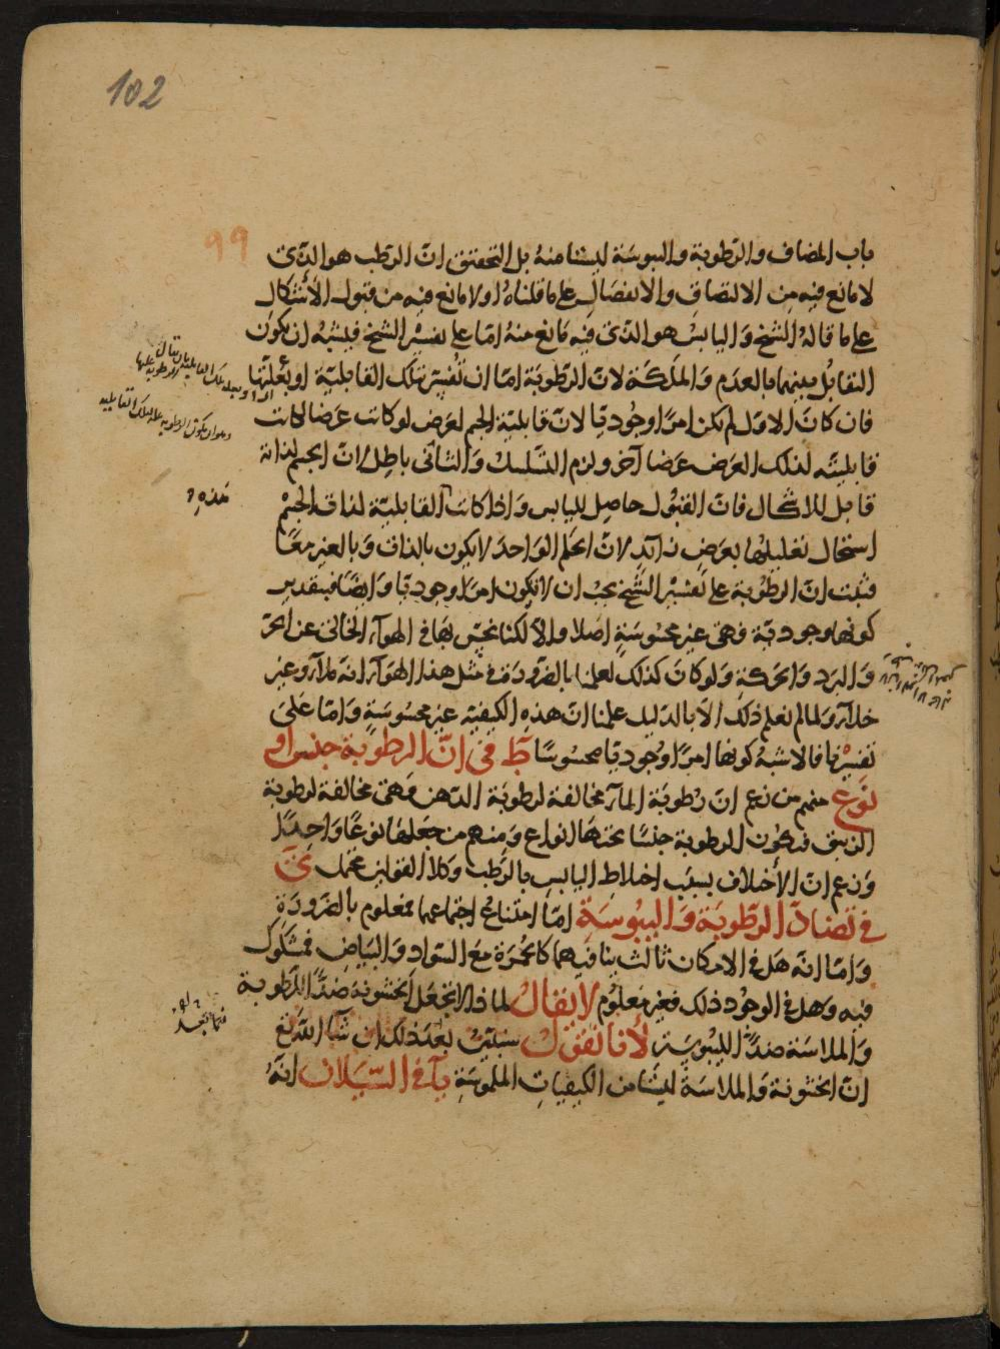 102
99
باب المضاف والرطوبة واليبوسة ليستا منه بل التحقيق ان الرطب هو الذى
لا مانع فيه من الالتصاق والانفصال على ما قلناه او لا مانع فيه من قبول الأشكال
على ما قاله الشيخ واليابس هو الذى فيه مانع منه اما على تفسير الشيخ فيشبه ان يكون
التقابل بينهما بالعدم والملكة لان الرطوبة اما ان تفسر بتلك القابلية او بعلتها
فان كان الاول لم يكن امرا وجوديا لان قابلية الجسم لعرض لو كانت عرضا لكانت
قابليته لذلك العرض عرضا آخر ولزم التسلسل والثانى باطل لان الجسم لذاته
قابل للاشكال فان القبول حاصل لليابس واذا كانت القابلية لذات الجسم
استحال تعليلها بعرض زائد لان الحكم الواحد لا يكون بالذات وبالغير معا
فثبت ان الرطوبة على تفسير الشيخ يجب ان لا تكون امرا وجوديا وايضا فبتقدير
كونها وجودية فهى غير محسوسة اصلا والا لكنا نحس بها فى الهواء الخالى عن الحر
والبرد والحركة ولو كان كذلك لعلمنا بالضرورة فى مثل هذا الهواء انه ملاء وغير
خلاء ولما لم نعلم ذلك الا بالدليل علمنا ان هذه الكيفية غير محسوسة واما على
تفسيرنا فالاشبه كونها امرا وجوديا محسوسا ط فى ان الرطوبة جنس او
نوع منهم من زعم ان رطوبة الماء مخالفة لرطوبة الدهن وهى مخالفة لرطوبة
الزيبق فتكون الرطوبة جنسا تحتها انواع ومنهم من جعلها نوعا واحدا
وزعم ان الأختلاف بسبب اختلاط اليابس بالرطب وكلا القولين محتمل ى
فى تضاد الرطوبة واليبوسة اما امتناع اجتماعهما فمعلوم بالضرورة
واما انه هل فى الامكان ثالث ينافيهما كالحمرة مع السواد والبياض فمشكوك
فيه وهل فى الوجود ذلك فغير معلوم لا يقال لما ذا لا تجعل الخشونة ضدا للرطوبة
والملاسة ضدا لليبوسة لأنا نقول سنبين بعد ذلك ان شاء الله تع
ان الخشونة والملاسة ليستا من الكيفيات الملموسة يآ فى السيلان انه